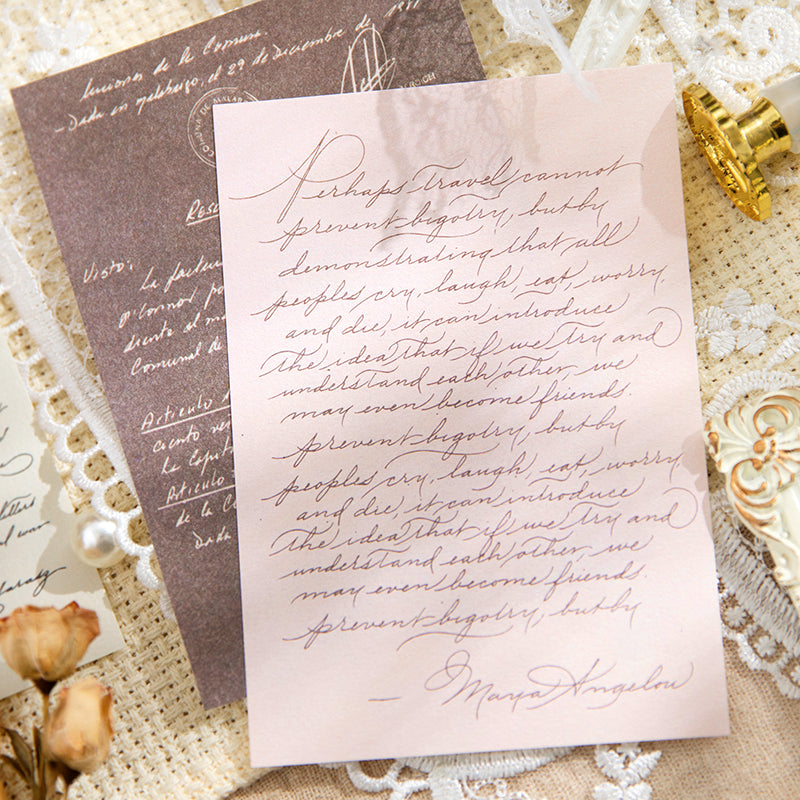 ciones de la Comuna.
Dada en Malabrigo, el 29 de Diciembre de 1981
COMUNA DE MALAB
Visto:
La factura
O'Connor po
Comunal de
Articulo
cuenta ve
la Capit
Articulo
de la Co
Dada
letters
Perhaps travel cannot
prevent bigotry, but by
demonstrating that all
peoples cry, laugh, eat, worry,
and die, it can introduce
the idea that if we try and
understand each other, we
may even become friends.
prevent bigotry, but by
peoples cry, laugh, eat, worry,
and die, it can introduce
the idea that if we try and
understand each other, we
may even become friends.
prevent bigotry, but by
— Maya Angelou